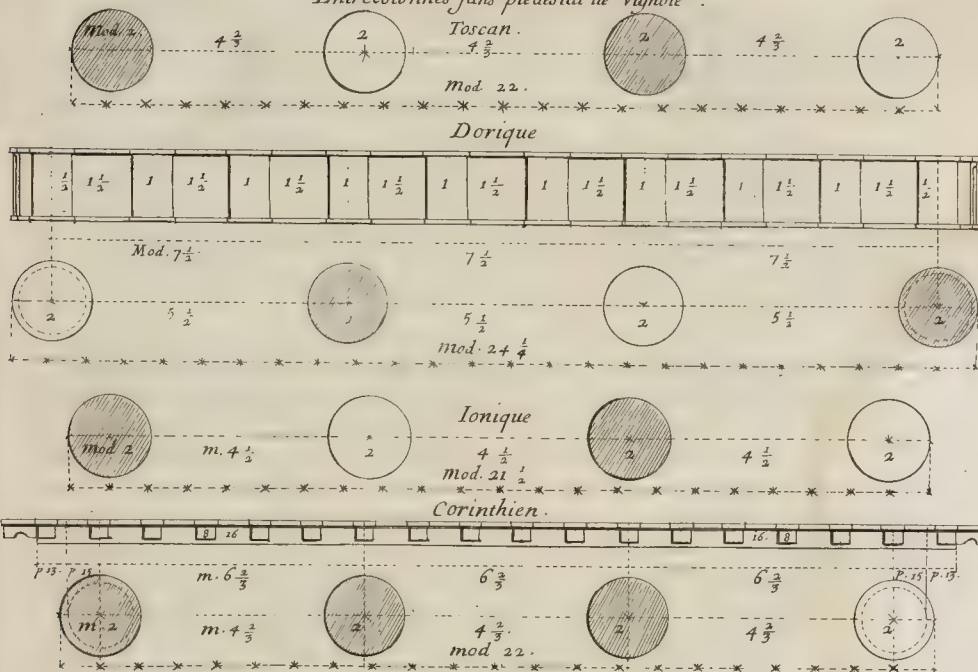 Entrecolonnes sans piedestal de Vignole.
Toscan.
Mod. 2. 4 2/3 2 4 2/3 2 4 2/3 2
Mod 22.
Dorique
1/2 1 1/2 1 1 1/2 1 1 1/2 1 1 1/2 1 1 1/2 1 1 1/2 1 1 1/2 1 1 1/2 1 1 1/2 1/2
Mod. 7 1/2 7 1/2 7 1/2
2 5 1/2 5 1/2 2 5 1/2 2
mod. 24 1/4
Ionique
mod 2 m. 4 1/2 2 4 1/2 2 4 1/2 2
mod. 21 1/2
Corinthien.
8 16 16. 8
p. 13. p. 15 m. 6 2/3 6 2/3 6 2/3 p. 15 p. 13.
m. 2 m. 4 2/3 2 4 2/3. 2 4 2/3 2
mod 22.